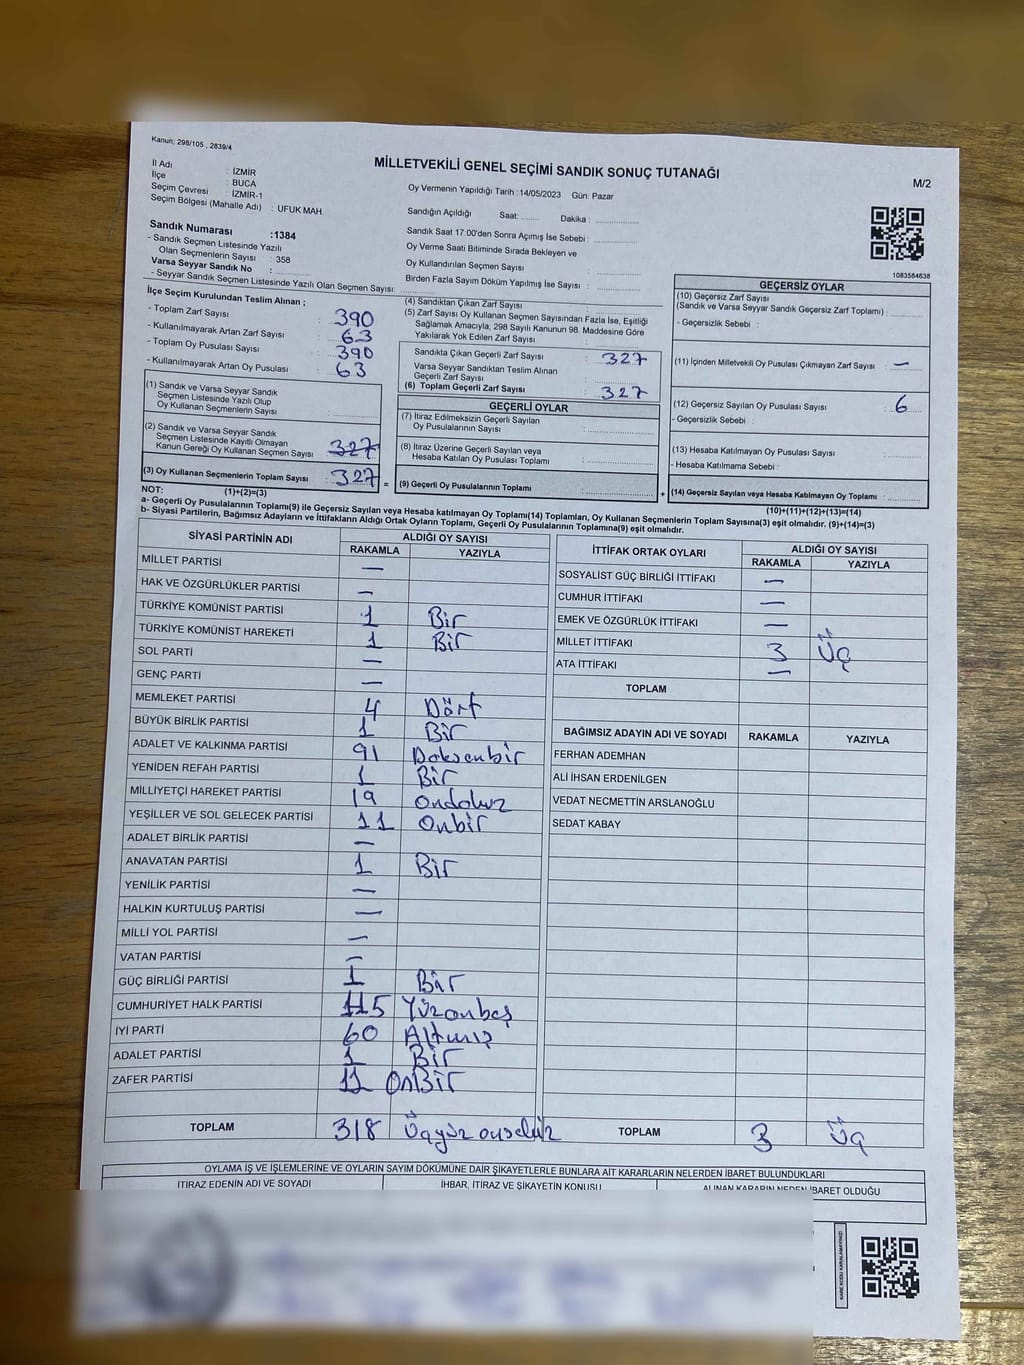 Kanun: 298/105 , 2839/4
MİLLETVEKİLİ GENEL SEÇİMİ SANDIK SONUÇ TUTANAĞI
M/2
İl Adı : İZMİR
İlçe : BUCA
Seçim Çevresi : İZMİR-1
Seçim Bölgesi (Mahalle Adı) : UFUK MAH.
Oy Vermenin Yapıldığı Tarih :14/05/2023 Gün: Pazar
Sandığın Açıldığı Saat: ........ Dakika : ..............
Sandık Saat 17.00'den Sonra Açımış İse Sebebi : ..............
Oy Verme Saati Bitiminde Sırada Bekleyen ve
Oy Kullandırılan Seçmen Sayısı : ..............
Birden Fazla Sayım Döküm Yapılmış İse Sayısı : ..............
1083584638
Sandık Numarası :1384
- Sandık Seçmen Listesinde Yazılı
Olan Seçmenlerin Sayısı : 358
Varsa Seyyar Sandık No : ..............
- Seyyar Sandık Seçmen Listesinde Yazılı Olan Seçmen Sayısı: ..............
İlçe Seçim Kurulundan Teslim Alınan ;
- Toplam Zarf Sayısı : 390
- Kullanılmayarak Artan Zarf Sayısı : 63
- Toplam Oy Pusulası Sayısı : 390
- Kullanılmayarak Artan Oy Pusulası : 63
(1) Sandık ve Varsa Seyyar Sandık
Seçmen Listesinde Yazılı Olup
Oy Kullanan Seçmenlerin Sayısı : ..............
(2) Sandık ve Varsa Seyyar Sandık
Seçmen Listesinde Kayıtlı Olmayan
Kanun Gereği Oy Kullanan Seçmen Sayısı : 327
(3) Oy Kullanan Seçmenlerin Toplam Sayısı : 327 =
(1)+(2)=(3)
(4) Sandıktan Çıkan Zarf Sayısı : ..............
(5) Zarf Sayısı Oy Kullanan Seçmen Sayısından Fazla İse, Eşitliği
Sağlamak Amacıyla; 298 Sayılı Kanunun 98. Maddesine Göre
Yakılarak Yok Edilen Zarf Sayısı : ..............
Sandıkta Çıkan Geçerli Zarf Sayısı : 327
Varsa Seyyar Sandıktan Teslim Alınan
Geçerli Zarf Sayısı : ..............
(6) Toplam Geçerli Zarf Sayısı : 327
GEÇERLİ OYLAR
(7) İtiraz Edilmeksizin Geçerli Sayılan
Oy Pusulalarının Sayısı : ..............
(8) İtiraz Üzerine Geçerli Sayılan veya
Hesaba Katılan Oy Pusulası Toplamı : ..............
(9) Geçerli Oy Pusulalarının Toplamı : .............. +
GEÇERSİZ OYLAR
(10) Geçersiz Zarf Sayısı
(Sandık ve Varsa Seyyar Sandık Geçersiz Zarf Toplamı) : ..............
- Geçersizlik Sebebi :
(11) İçinden Milletvekili Oy Pusulası Çıkmayan Zarf Sayısı : —
(12) Geçersiz Sayılan Oy Pusulası Sayısı : 6
- Geçersizlik Sebebi :
(13) Hesaba Katılmayan Oy Pusulası Sayısı : ..............
- Hesaba Katılmama Sebebi :
(14) Geçersiz Sayılan veya Hesaba Katılmayan Oy Toplamı : ..............
(10)+(11)+(12)+(13)=(14)
NOT:
a- Geçerli Oy Pusulalarının Toplamı(9) ile Geçersiz Sayılan veya Hesaba katılmayan Oy Toplamı(14) Toplamları, Oy Kullanan Seçmenlerin Toplam Sayısına(3) eşit olmalıdır. (9)+(14)=(3)
b- Siyasi Partilerin, Bağımsız Adayların ve İttifakların Aldığı Ortak Oyların Toplamı, Geçerli Oy Pusulalarının Toplamına(9) eşit olmalıdır.
SİYASİ PARTİNİN ADI ALDIĞI OY SAYISI
RAKAMLA YAZIYLA
MİLLET PARTİSİ —
HAK VE ÖZGÜRLÜKLER PARTİSİ —
TÜRKİYE KOMÜNİST PARTİSİ 1 Bir
TÜRKİYE KOMÜNİST HAREKETİ 1 Bir
SOL PARTİ —
GENÇ PARTİ —
MEMLEKET PARTİSİ 4 Dört
BÜYÜK BİRLİK PARTİSİ 1 Bir
ADALET VE KALKINMA PARTİSİ 91 Doksanbir
YENİDEN REFAH PARTİSİ 1 Bir
MİLLİYETÇİ HAREKET PARTİSİ 19 Ondokuz
YEŞİLLER VE SOL GELECEK PARTİSİ 11 Onbir
ADALET BİRLİK PARTİSİ —
ANAVATAN PARTİSİ 1 Bir
YENİLİK PARTİSİ —
HALKIN KURTULUŞ PARTİSİ —
MİLLİ YOL PARTİSİ —
VATAN PARTİSİ —
GÜÇ BİRLİĞİ PARTİSİ 1 Bir
CUMHURİYET HALK PARTİSİ 115 Yüzonbeş
İYİ PARTİ 60 Altmış
ADALET PARTİSİ 1 Bir
ZAFER PARTİSİ 11 OnBir
TOPLAM 318 Üçyüz onsekiz
İTTİFAK ORTAK OYLARI ALDIĞI OY SAYISI
RAKAMLA YAZIYLA
SOSYALİST GÜÇ BİRLİĞİ İTTİFAKI —
CUMHUR İTTİFAKI —
EMEK VE ÖZGÜRLÜK İTTİFAKI —
MİLLET İTTİFAKI 3 Üç
ATA İTTİFAKI —
TOPLAM
BAĞIMSIZ ADAYIN ADI VE SOYADI RAKAMLA YAZIYLA
FERHAN ADEMHAN
ALİ İHSAN ERDENİLGEN
VEDAT NECMETTİN ARSLANOĞLU
SEDAT KABAY
TOPLAM 3 Üç
OYLAMA İŞ VE İŞLEMLERİNE VE OYLARIN SAYIM DÖKÜMÜNE DAİR ŞİKAYETLERLE BUNLARA AİT KARARLARIN NELERDEN İBARET BULUNDUKLARI
İTİRAZ EDENİN ADI VE SOYADI İHBAR, İTİRAZ VE ŞİKAYETİN KONUSU ALINAN KARARIN NEDEN İBARET OLDUĞU